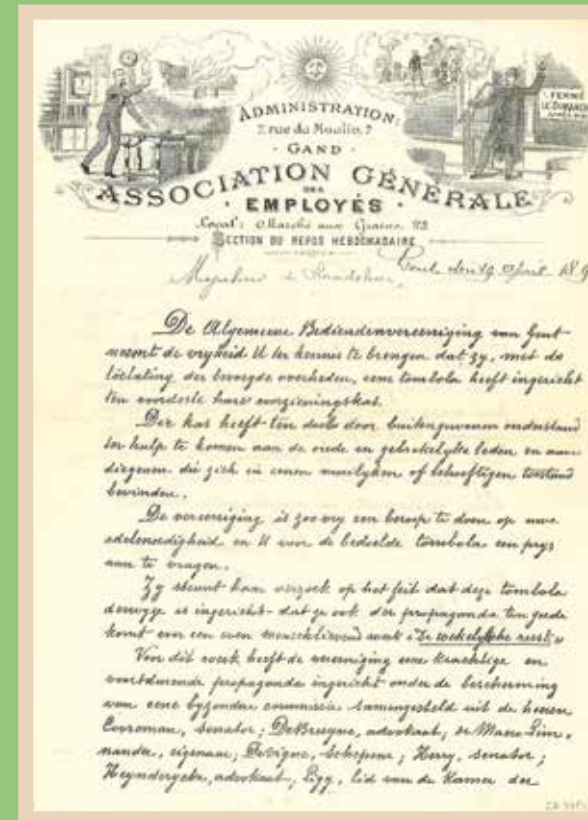 ADMINISTRATION:
7, rue du Moulin, 7
· GAND ·
ASSOCIATION GÉNÉRALE
DES
· EMPLOYÉS ·
Local: Marché aux Grains, 23
SECTION DU REPOS HEBDOMADAIRE
FERMÉ
LE DIMANCHE
Gent, den 19 April 189
De Algemeene Bediendenvereeniging van Gent
neemt de vrijheid U ter kennis te brengen dat zy, met de
toelating der bevoegde overheden, eene tombola heeft ingericht
ten voordeele harer voorzieningskas.
Die kas heeft ten doele door buitengewonen onderstand
ter hulp te komen aan de oude en gebrekelyke leden en aan
diegenen die zich in eenen moeilyken of behoeftigen toestand
bevinden.
De vereeniging is zoo vry een beroep te doen op uwe
edelmoedigheid en U voor de bedoelde tombola een prys
aan te vragen.
Zy steunt haar verzoek op het feit dat deze tombola
derwyze is ingericht dat ze ook der propaganda ten goede
komt voor een even menschlievend werk "De wekelyksche rust."
Voor dit werk heeft de vereeniging eene krachtige en
voortdurende propaganda ingericht onder de bescherming
van eene byzondere commissie samengesteld uit de heeren
Cooreman, senator; De Bruyne, advokaat; de Maere Lim-
nander, eigenaar; Devigne, schepene; Herry, senator;
Heynderyckx, advokaat; Ligy, lid van de Kamer der